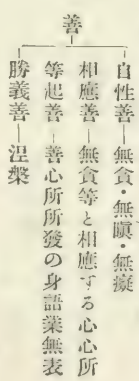 善
自性善―無貪・無瞋・無癡
相應善―無貪等と相應する心心所
等起善―善心所所發の身語業無表
勝義善―涅槃